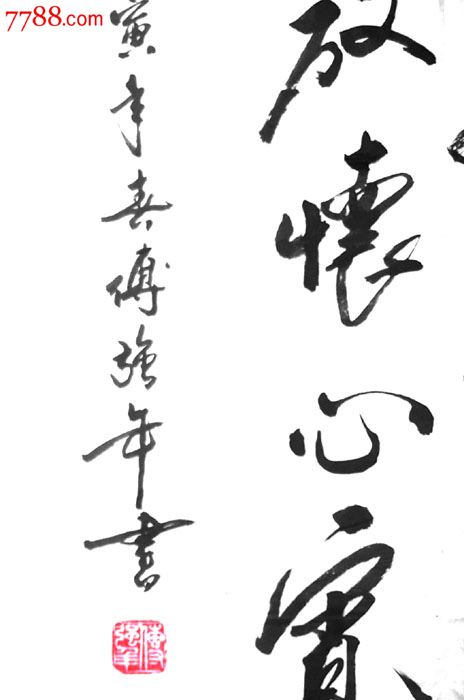 7788.com
放懷心寬
寅年春傅強年書
傅強年